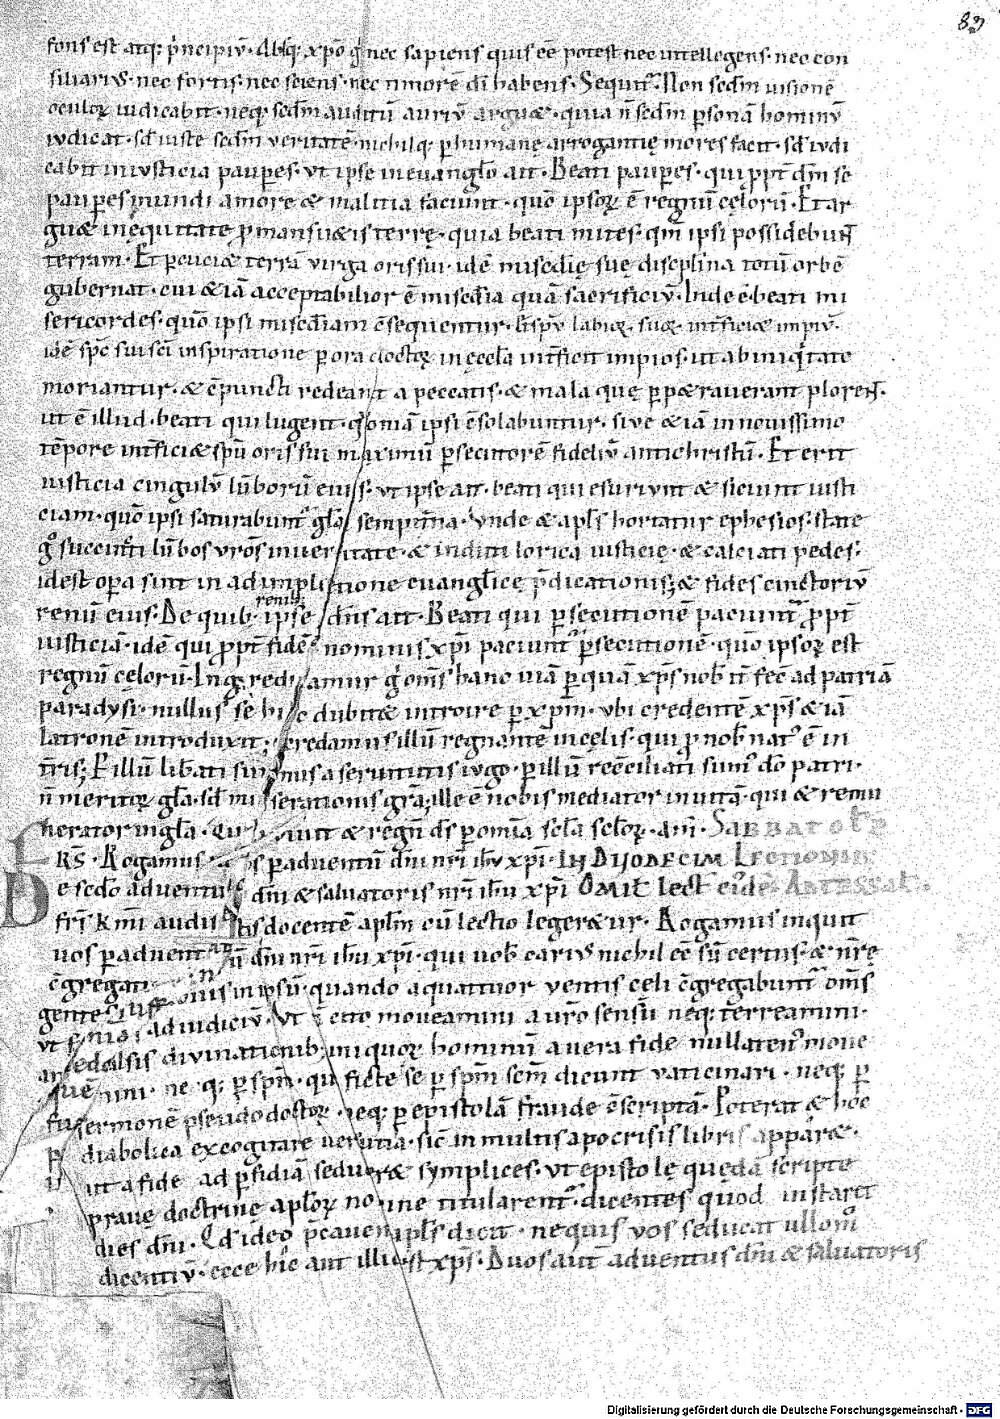 83
fons est atq; p̄ncipiū. Absq; xp̄o g̊ nec sapiens quis eē potest nec intellegens. nec con
siliariꝰ. nec fortis. nec sciens. nec timorē dī habens. Sequit̄. Non scd̄m visionē
oculoꝝ iudicabit. neq; scd̄m auditū auriū arguæ. quia n̄ scd̄m psonā hominū
iudicat. sd̄ iuste scd̄m veritatē. nichilq; p humanę arrogantię mores facit. sd̄ iudi
cabit in iusticia paupes. vt ipse in evangl̄o ait. Beati paupes. qui ppt̄ dm̄ se
paupes mundi amore & malitia faciunt. quō ipsoꝝ ē regnū cęlorū. Et ar
guæ in equitate p mansuætis terrę. quia beati mites. qm̄ ipsi possidebunt
terram. Et pcuciæ terrā virga oris sui. idē misc̄dię suę disciplina totū orbē
gubernat. cui & iā acceptabilior ē misc̄dia quā sacrificiū. Inde ē. beati mi
sericordes. quō ipsi misc̄diam ēsequentur. & spū labioꝝ suoꝝ int̄ficiæ impiū.
idē spc̄ sui scī inspiratione p ora doctoꝝ in ęccl̄a int̄ficit impios. ut ab iniq̇tate
moriantur. & ēpuncti redeant a peccatis. & mala quę ppætraverant plorent.
ut ē illud. beati qui lugent. qōniā ipsi ēsolabuntur. sive & iā in novissimo
tēpore int̄ficiæ spū oris sui maximū psecutorē fideliū antichristū. Et erit
iusticia cingulū lūborū eius. vt ipse ait. beati qui esuriunt & siciunt iusti
ciam. quō ipsi saturabunt̄ gl̄a sempit̄na. Vnde & apl̄s hortatur ephesios. state
g̊ succinti lūbos vros̄ in veritate. & induti lorica iusticię. & calciati pedes.
idest opa sint in adimpletione evangl̄icę p̄dicationis; & fides cinctoriū
reniū eius. De quib. ipse dn̄s ait. Beati qui psecutionē paciunt̄ ppt̄
renibꝰ
iusticiā. idē qui ppt̄ fidē nominis xp̄i paciunt̄ psecutionē. quō ipsoꝝ est
regnū cęlorū. Ingrediamur g̊ om̄s hanc viā p quā xp̄s nob̄ it̄ fec̄ ad patriā
paradysi. nullus se hinc dubitæ introire p xp̄m. vbi credentē xp̄s & iā
latronē introduxit. credamus illū regnantē in cęlis. qui p nob̄ natꝰ ē in
t̄ris; P illū lib̄ati sumus a servitutis iugo. p illū recēciliati sumꝰ dō patri.
n̄ meritoꝝ gl̄a. sd̄ miserationis gr̄a; ille ē nobis mediator in vitā. qui & remu
nerator in gl̄a. Cu vivit & regn̄ ds̄ p omīa scl̄a scl̄oꝝ. am̄. SABBATO
FRS̄. Rogamus vos p adventū dn̄i nr̄i ihū xp̄i. IN DUODECIM LECTIONIBꝰ
De scd̄o adventu dn̄i & salvatoris nr̄i ihū xp̄i OMIĹ lect̄ eiꝰdē
frs̄ kmī audistis docentē aplm̄ cū lectio legeræur. Rogamus inquit
vos p adventū dn̄i nr̄i ihū xp̄i. qui vob̄ carius nichil eē sū certus. & nr̄ę
cgregationis in ipsū. quando a quattuor ventis celi cgregabunt̄ om̄s
gentes ad iudiciū. Vt n̄ cito moveamini a vr̄o sensū neq; terreamini.
ut falsis divinationib iniquoꝝ hominū a vera fide nullatenꝰ move
mini. neq; p spm̄. qui ficte se p spm̄ scm̄ dicunt vaticinari. neq; p
sermonē pseudodoctoꝝ. neq; p epistolā fraude ēscriptā. Poterat & hoc
diabolica excogitare versutia. sic̄ in multis apocrisis libris apparæ.
ut a fide ad pfidiā seduceræ symplices. vt epistolę quędā scripte
pravę doctrinę apl̄oꝝ nomine titularent̄. dicentes quod instarit
dies dn̄i. Qd̄ ideo p̄cavens apl̄s dicit. ne quis vos seducat ullomꝰ
dicentiū. ecce hic aut illic est xp̄s. Duos aūt adventus dn̄i & salvatoris
Digitalisierung gefördert durch die Deutsche Forschungsgemeinschaft - DFG